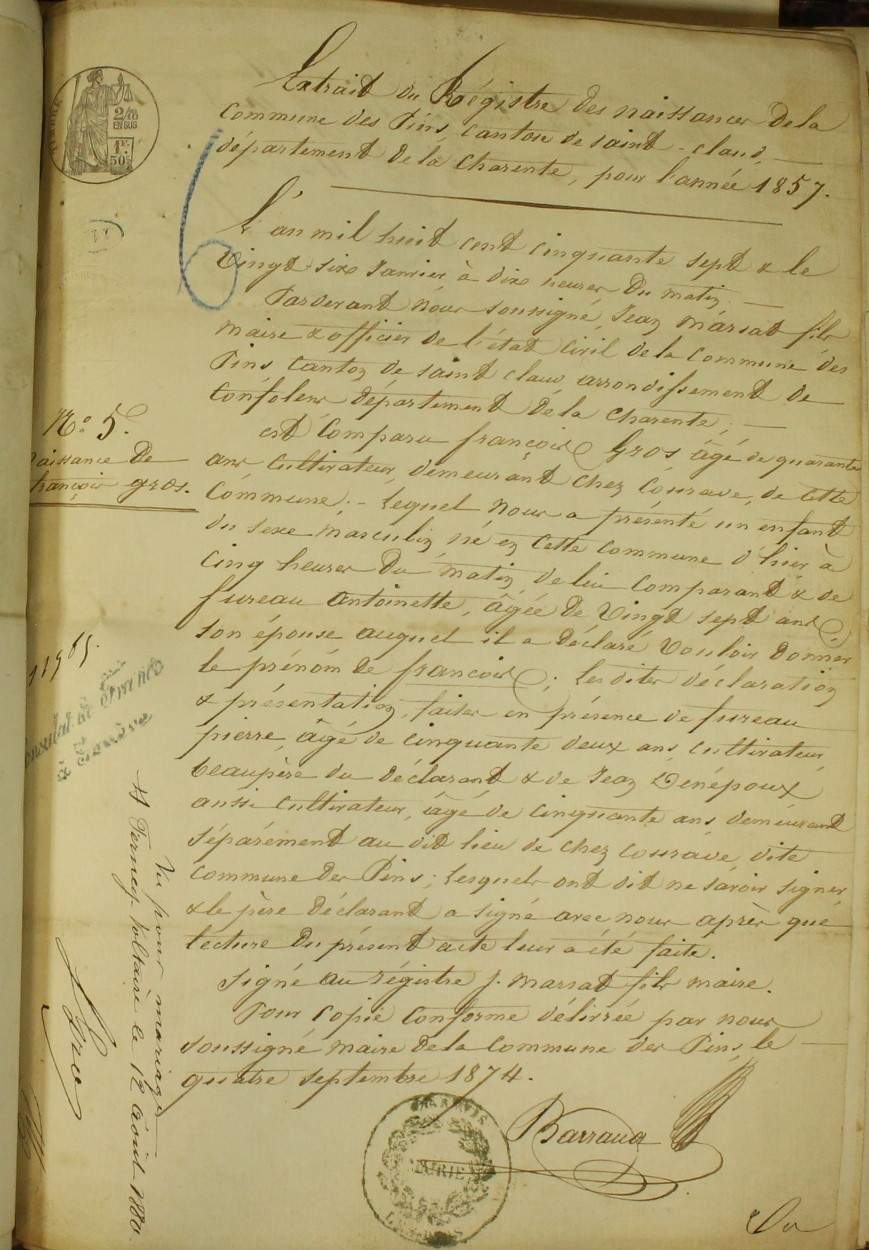 Extrait du Régistre des naissances de la
commune des Pins, canton de saint-claud,
département de la charente, pour l'année 1857.
2/10
EN SUS
1F
50c
6
L'an mil huit cent cinquante sept & le
Vingt six Janvier à dix heures du matin. —
Pardevant Nous soussigné, Jean Marsat fils
maire & officier de l'état civil de la commune des
Pins canton de saint claud, arrondissement de
Confolens département de la charente, —
N.o 5.
Naissance de
françois gros.
est comparu françois Gros âgé de quarante
ans cultivateur, demeurant chez Courave, de cette
Commune; - Lequel Nous a présenté un enfant
du sexe Masculin né en cette commune d'hier à
cinq heures du matin, de lui comparant & de
fureau Antoinette, âgée de Vingt sept ans,
son épouse auquel il a déclaré Vouloir donner
le prénom de françois; Les dites déclaration
& présentation, faites en présence de fureau
pierre, âgé de cinquante deux ans, cultivateur,
beaupère du déclarant & de Jean Dénépoux
aussi cultivateur, âgé de cinquante ans demeurant
séparément au dit lieu de chez Courave, dite
commune des Pins; Lesquels ont dit ne savoir signer
& le père déclarant a signé avec nous après que
lecture du présent acte leur a été faite.
signé au régistre J. Marsat fils maire.
Pour copie conforme délivrée par nous
soussigné maire de la commune des Pins, le —
quatre septembre 1874.
Barraud
MAIRIE
Consulat de France
à Genève
Vu pour mariage
A Ferney-Voltaire le 12 août 1880